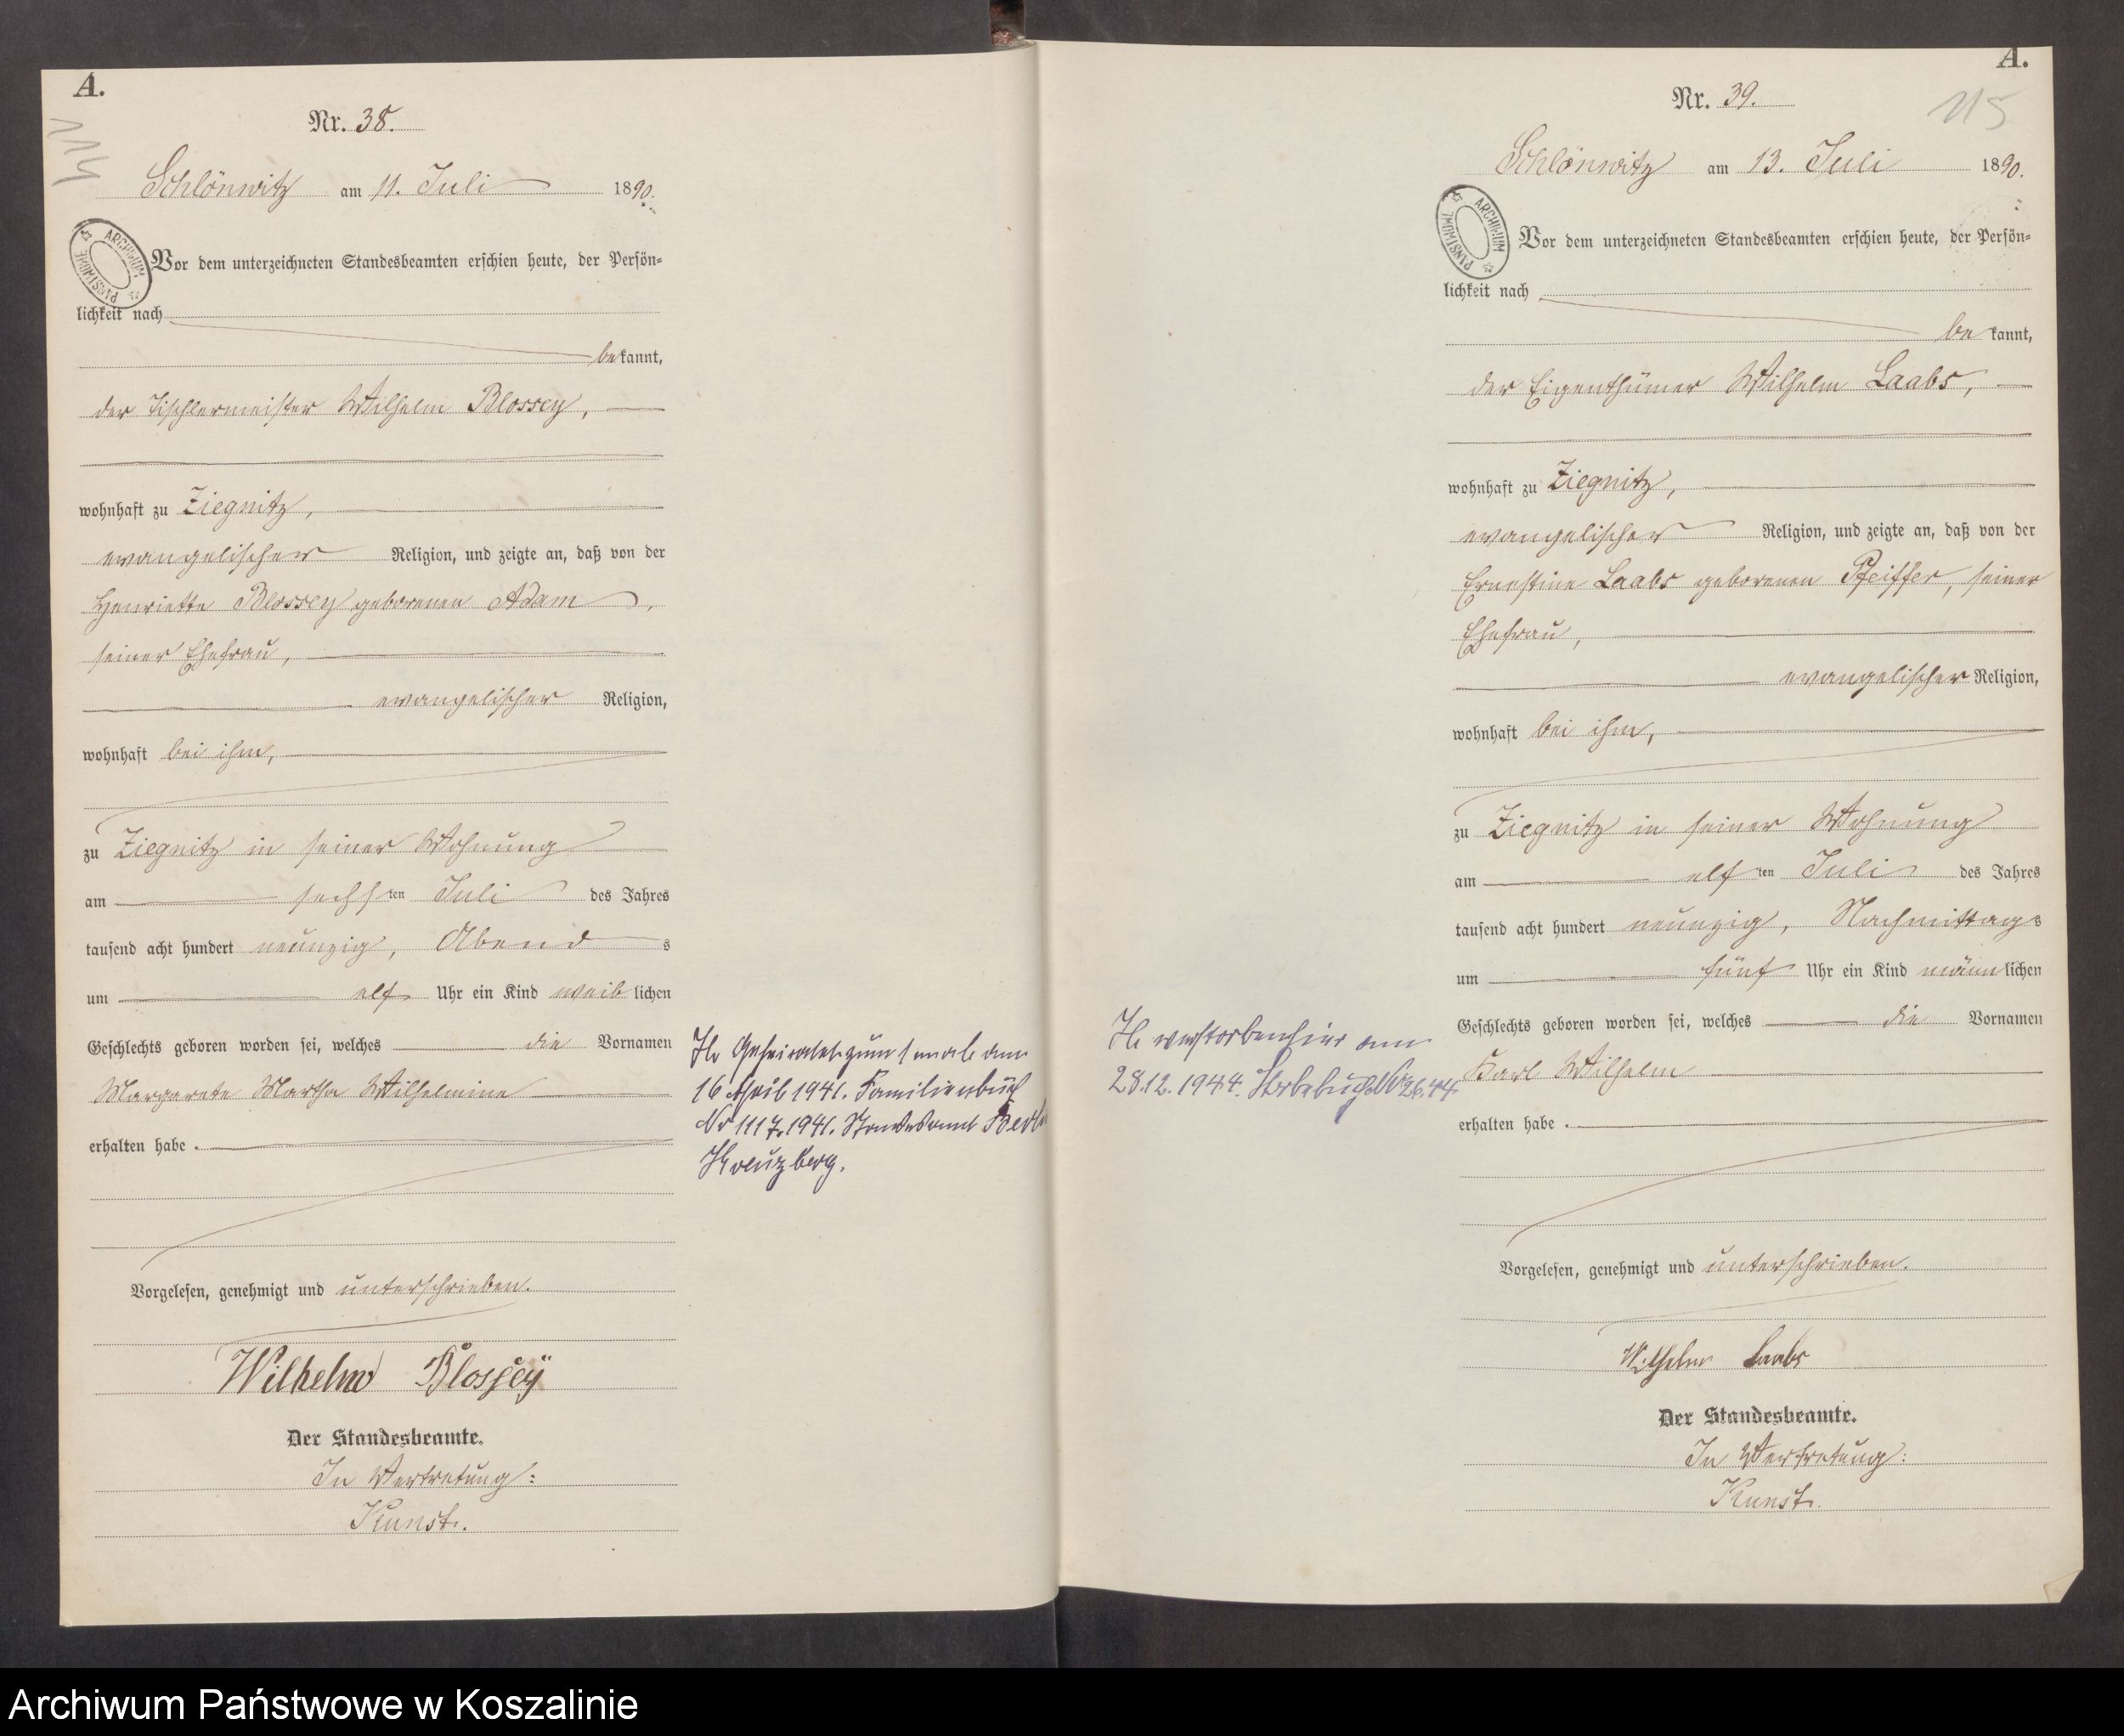 A.
114
Nr. 38.
Schlönwitz am 11. Juli 1890.
ARCHIWUM PAŃSTWOWE
Vor dem unterzeichneten Standesbeamten erschien heute, der Persön-
lichkeit nach
bekannt,
der Tischlermeister Wilhelm Blossey,
wohnhaft zu Ziegnitz,
evangelischer Religion, und zeigte an, daß von der
Henriette Blossey geborenen Adam,
seiner Ehefrau,
evangelischer Religion,
wohnhaft bei ihm,
zu Ziegnitz in seiner Wohnung
am sechsten Juli des Jahres
tausend acht hundert neunzig, Abends
um elf Uhr ein Kind weiblichen
Geschlechts geboren worden sei, welches die Vornamen
Margarete Martha Wilhelmine
erhalten habe.
Vorgelesen, genehmigt und unterschrieben.
Wilhelm Blossey
Der Standesbeamte.
In Vertretung:
Kunst.
Geheiratet zum 1 male am
16 April 1941. Familienbuch
Nr 1117.1941. Standesamt Berlin
Kreuzberg.
A.
115
Nr. 39.
Schlönwitz am 13. Juli 1890.
ARCHIWUM PAŃSTWOWE
Vor dem unterzeichneten Standesbeamten erschien heute, der Persön-
lichkeit nach
bekannt,
der Eigenthümer Wilhelm Laabs,
wohnhaft zu Ziegnitz,
evangelischer Religion, und zeigte an, daß von der
Ernestine Laabs geborenen Pfeiffer, seiner
Ehefrau,
evangelischer Religion,
wohnhaft bei ihm,
zu Ziegnitz in seiner Wohnung
am elften Juli des Jahres
tausend acht hundert neunzig, Nachmittags
um fünf Uhr ein Kind männlichen
Geschlechts geboren worden sei, welches die Vornamen
Karl Wilhelm
erhalten habe.
Vorgelesen, genehmigt und unterschrieben.
Wilhelm Laabs
Der Standesbeamte.
In Vertretung:
Kunst.
verstorben hier am
28.12.1944. Sterbebuch Nr 26.44
Archiwum Państwowe w Koszalinie